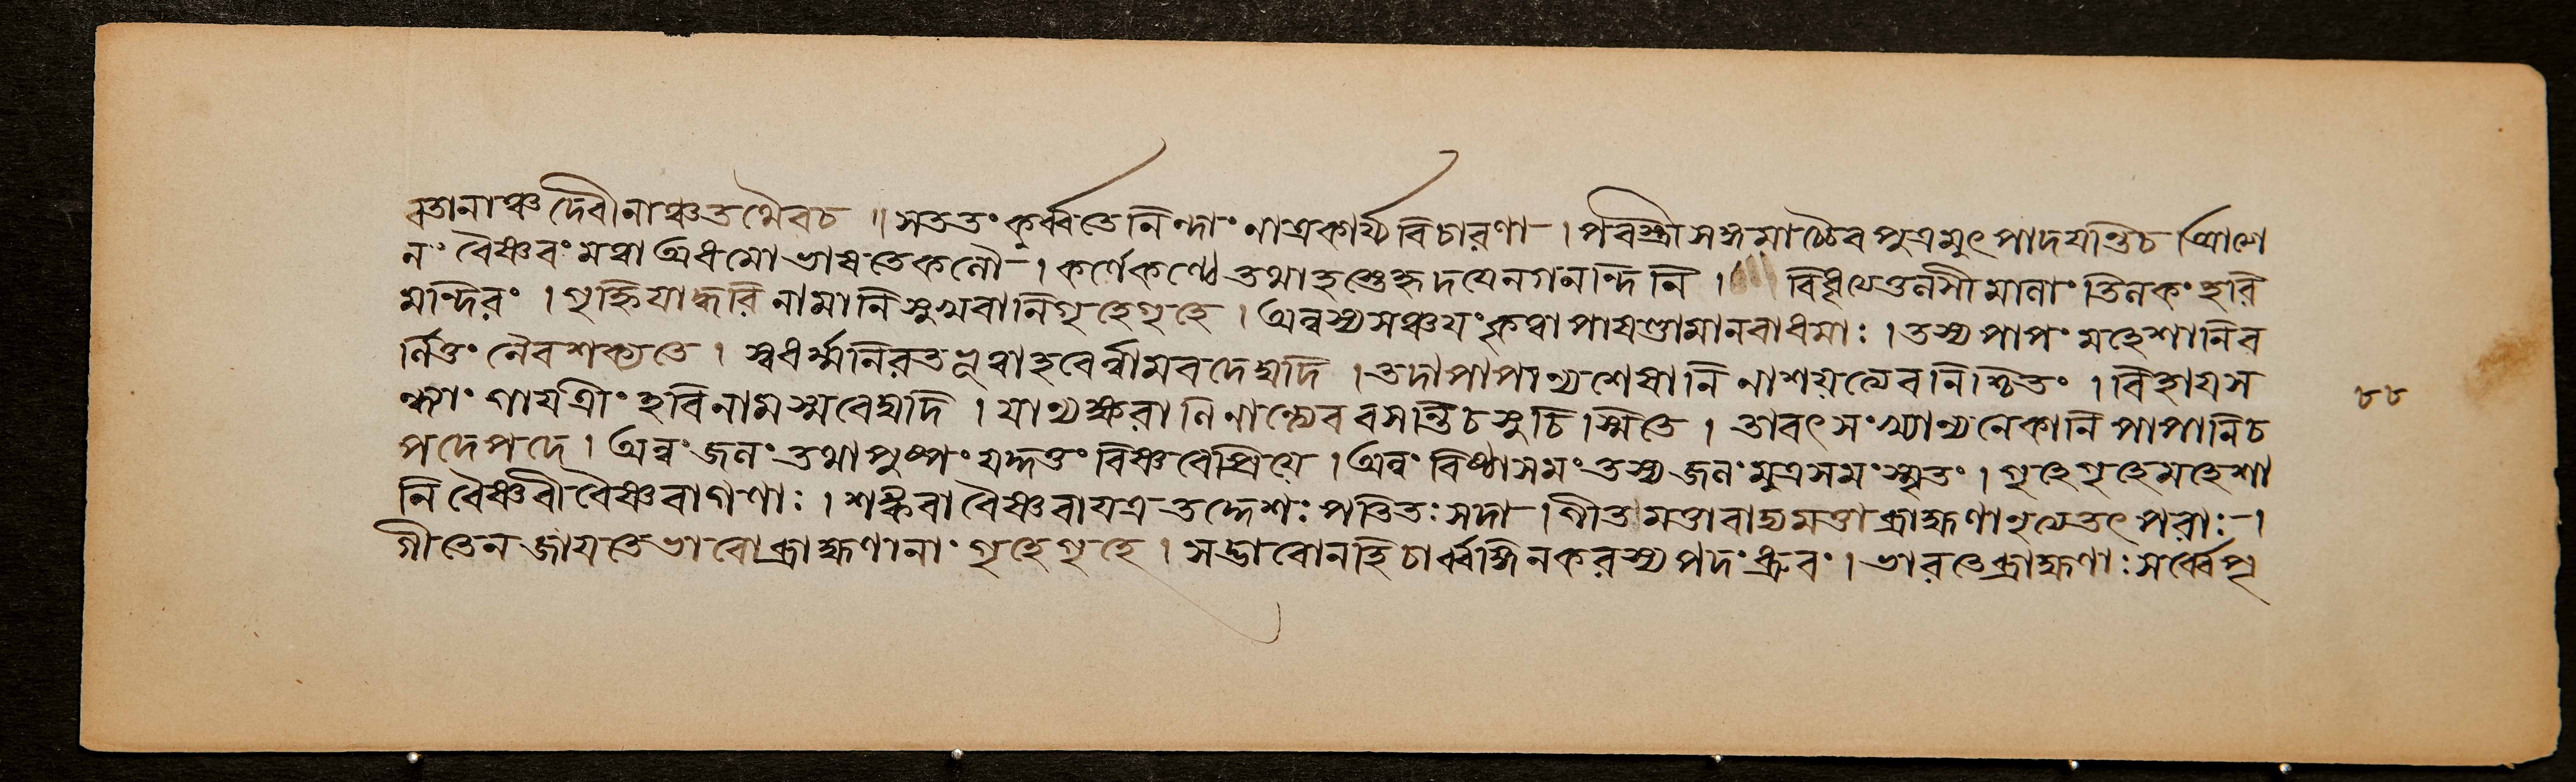 বতানাঞ্চ দেবীনাঞ্চ তথৈবচ ॥ সততং কুর্ব্বতে নিন্দাং নাত্রকার্য্যবিচারণা । পরস্ত্রীসঙ্গমাচ্চৈব পুত্রমুৎপাদযন্তিচ
নং বৈষ্ণবং মন্ত্রা অধমো ভাষতেকলৌ । কর্ণেকর্ণে তথাহস্তে হৃদযেনগনন্দিনি । তিলকং হরি
মন্দিরং । গৃহ্নিযাদ্ধরিনামানি সুখরানিগৃহেগৃহে । অন্নস্যসঞ্চযংকৃত্বা পাষণ্ডামানবাধমাঃ । তস্য পাপং মহেশানিব
র্ণিতুং নৈবশক্যতে । স্বধর্ম্মনিরতভূত্বাহরের্ন্নামবদেদ্যদি । তদাপাপান্যশেষানি নাশয়ত্যেবনিশ্চিতং । বিহাযস
ন্ধ্যাং গাযত্রীং হরিনামস্মরেদ্যদি । যান্যক্ষরাণিনাম্ন্যেব বসন্তিচসুচিস্মিতে । তাবৎসংখ্যান্যনেকানি পাপানিচ
পদেপদে । অন্নং জলং তথাপুষ্পং যদ্দত্তং বিষ্ণবেপ্রিযে । অন্নং বিষ্ঠাসমং তস্য জলংমুত্রসমং স্মৃতং । গৃহেগৃহেমহেশা
নি বৈষ্ণবীবৈষ্ণবাগণাঃ । শঙ্করাবৈষ্ণবাযত্র তদ্দেশঃ পতিতঃ সদা । গীতমত্তাবাদ্যমত্তাব্রাহ্মণানৃত্যেতৎপরাঃ ।
গীতেন জাযতেভাবোব্রাহ্মণানাং গৃহেগৃহে । সদ্ভাবোনহিচার্ব্বঙ্গিনকরস্য পদংধ্রুবং । ভারতেব্রাহ্মণাঃ সর্ব্বেপৃ
৮৮